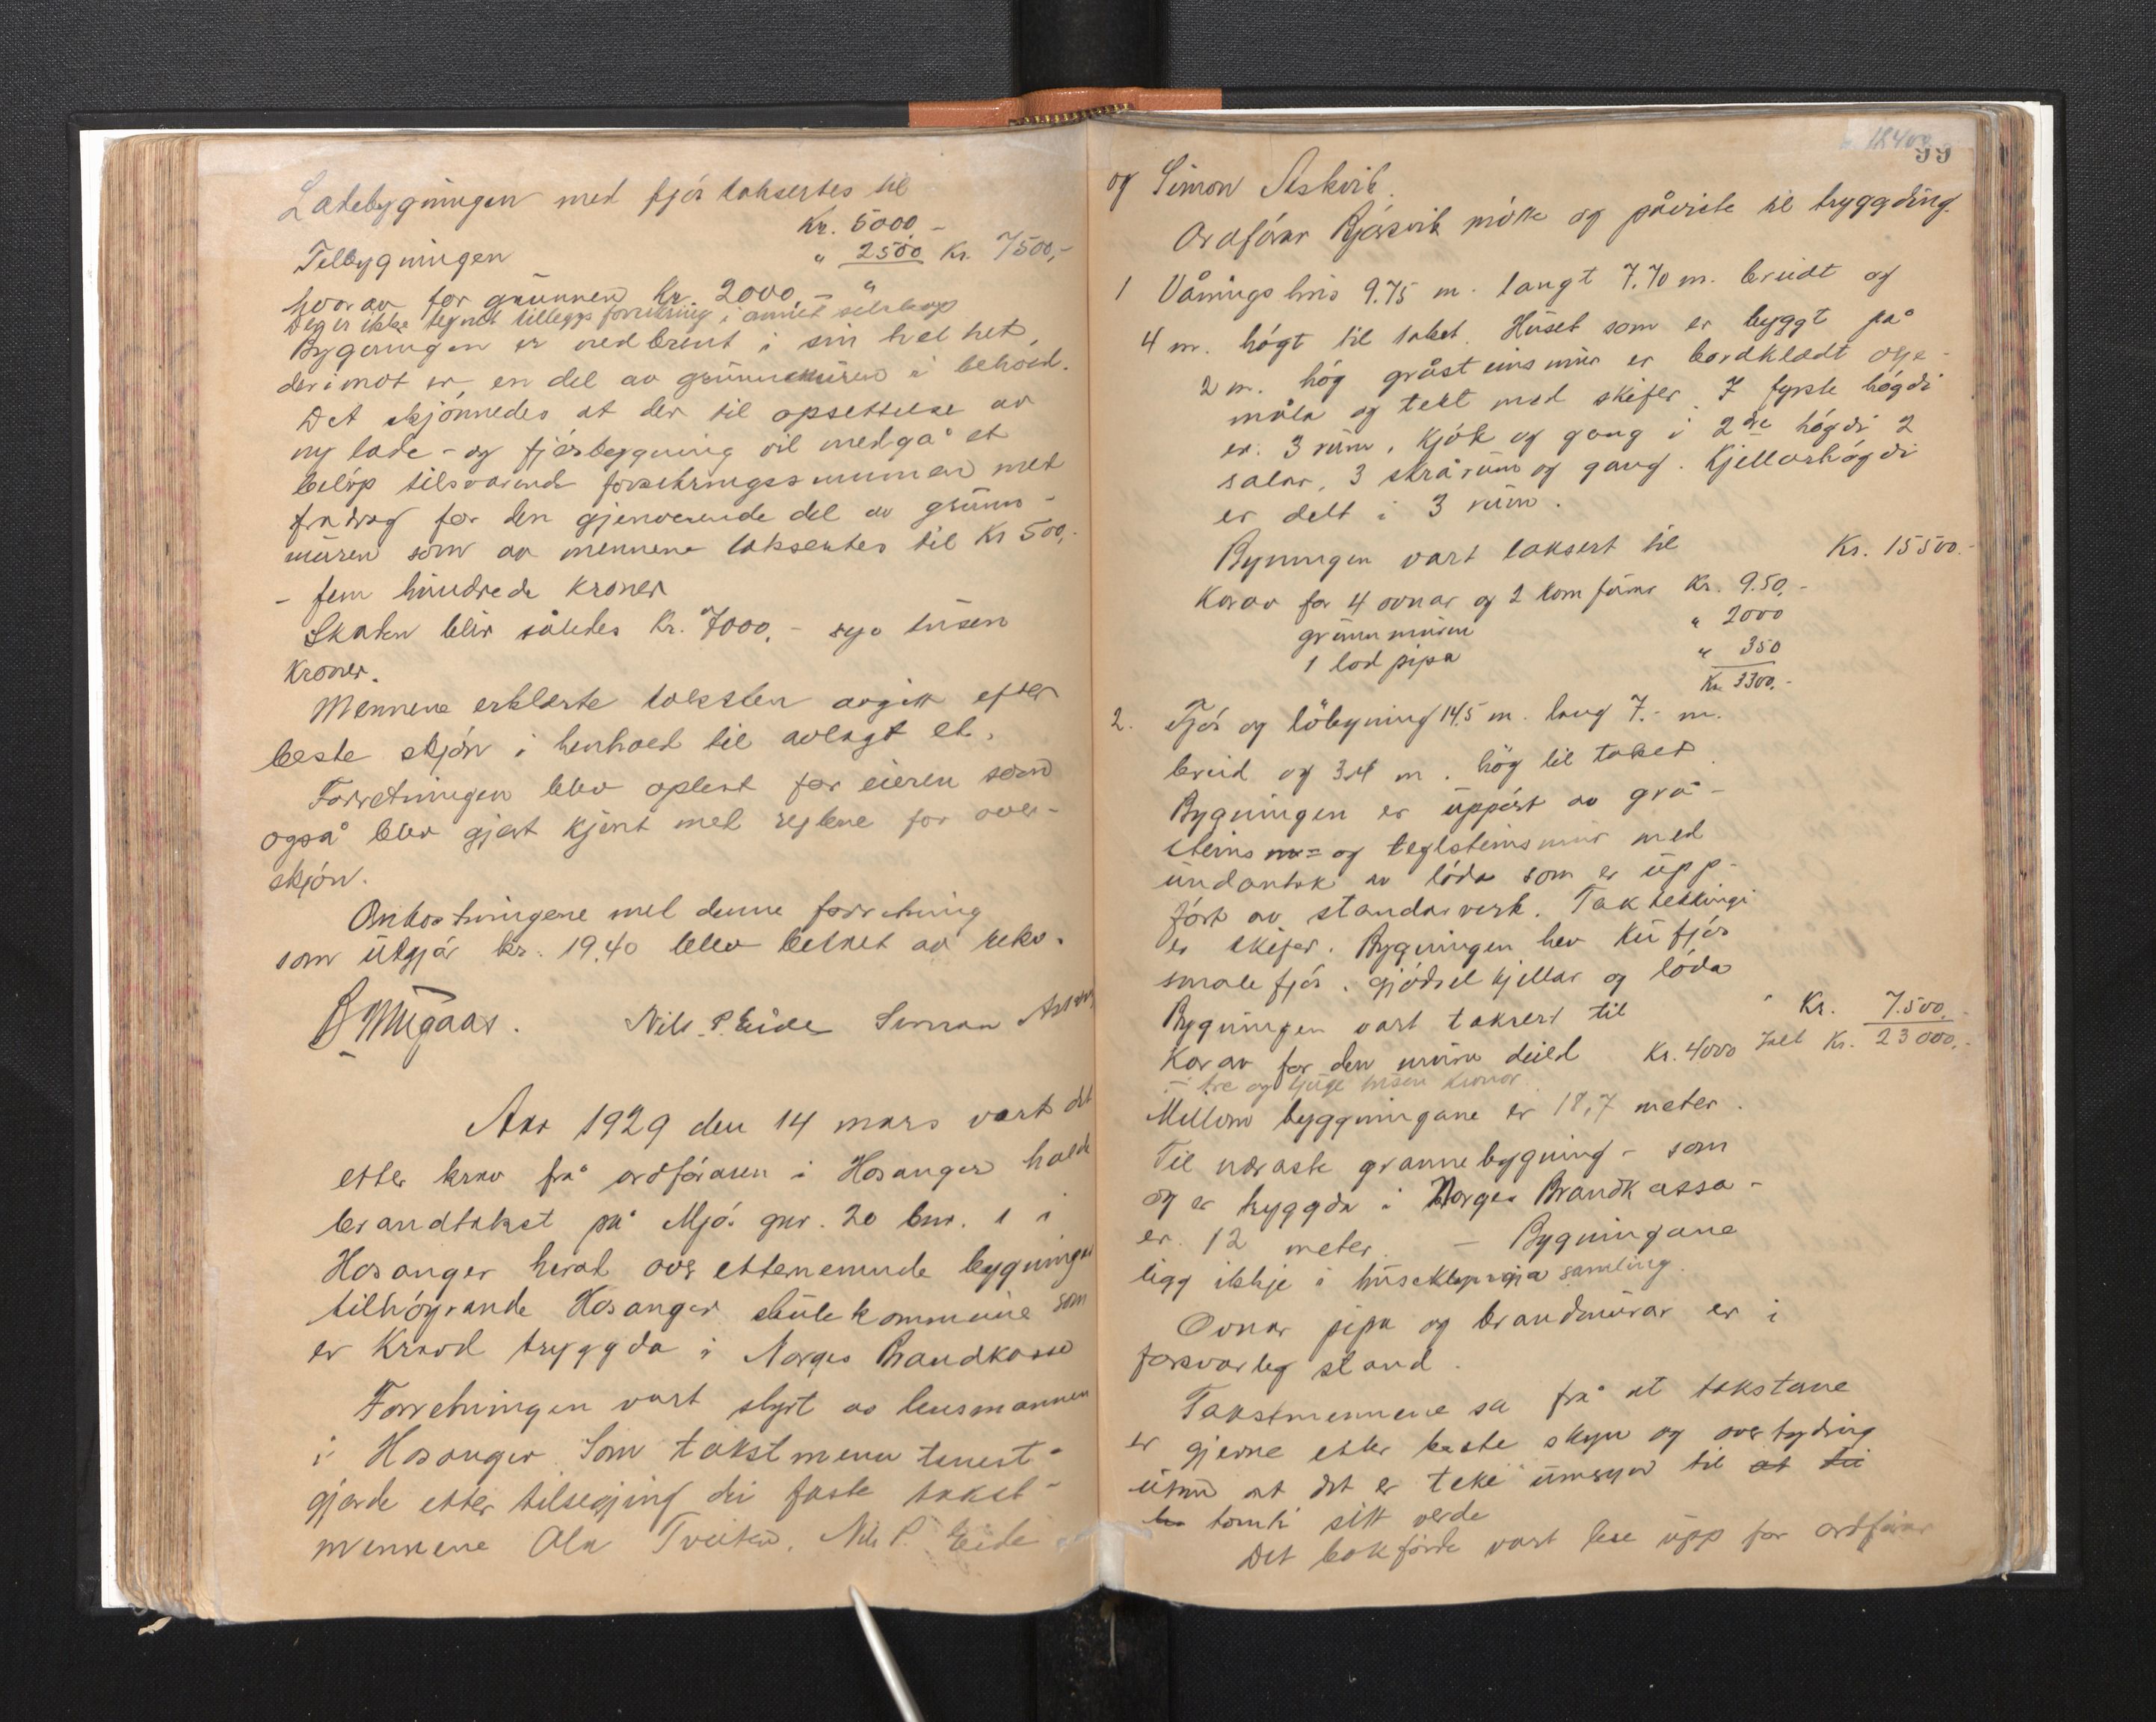 Ladebygningen med fjós taksertes til
Kr. 5000,-
Tilbygningen " 2500 Kr. 7500,-
hvorav for grunnen kr. 2000,- "
Deg er ikke tegnet tilleggsforsikring i annet selskap
Bygningen er nedbrent i sin helhet,
derimot er en del av grunnmuren i behold.
Det skjönnedes at der til opsettelse av
ny lade- og fjösbygning vil medgå et
belöp tilsvarende forsikringssummen med
fradrag for den gjenverende del av grunn-
muren som av mennene taksertes til Kr 500,-
- fem hundrede kroner
Skaden blir således Kr. 7000,- syv tusen
kroner.
Mennene erklærte taksten avgitt efter
beste skjön i henhold til avlagt ed.
Forretningen blev oplest for eieren som
også blev gjort kjent med reglene for over-
skjön.
Omkostningene med denne forretning
som utgjör kr. 19,40 blev betalt av rekv.
Mugaas. Nils P. Eide Simon Askvik
Aar 1929 den 14 mars vart det
etter krav frå ordföraren i Hosanger halde
brandtakst på Mjós gnr. 20 bnr. 1 i
Hosanger herad over etternemnde bygningar
tilhöyrande Hosanger skulekommune som
er Kravd tryggda i Norges Brandkasse
Forretningen vart styrt av lensmannen
i Hosanger. Som takstmenn tenest-
gjorde etter tilsegjing dei faste takst-
mennene Ola Tveiten, Nils P. Eide
99
18400
og Simon Askvik.
Ordförar Bjórsvik mótte og påviste til tryggding.
1 Våningshus 9.75 m. langt 7.70 m. breidt og
4 m. högt til taket. Huset som er byggt på
2 m. hög gråsteinsmur er bordklædt olje-
måla og tekt med skifer. I fyrste högdi
er: 3 rum, kjök og gang i 2dre högdi 2
salar, 3 skrårum og gang. Kjellarhögdi
er delt i 3 rum.
Bygningen vart taksert til Kr. 15500.-
Korav for 4 ovnar og 2 komfúrar Kr. 9.50,-
grunnmuren " 2000
1 lod pipa " 350
Kr. 3300,-
2. Fjós og löbygning 14,5 m. lang 7.- m.
breid og 3,4 m. hög til taket.
Bygningen er uppfört av grå-
steins og teglsteinsmur med
undantak av löda som er upp-
fört av standarverk. Taktekkingi
er skifer. Bygningen hev kufjós
smalefjós, gjödselkjellar og löda
Bygningen vart taksert til " Kr. 7.500,-
Korav for den mura deild Kr. 4000 Ialt Kr. 23000,-
- tre og tjuge tusen kronor
Millom byggningane er 18,7 meter.
Til næraste grannebygning - som
og er tryggda i Norges Brandkassa -
er 12 meter. - Bygningane
ligg ikkje i husaklyngja samling.
Ovnar pipa og brandmurar er i
forsvarleg stand.
Takstmennene sa frå at takstane
er gjerne etter beste skyn og overtyding
utan at det er teke umsyn til at
tomti sitt verde
Det bokförde vart lese upp for ordförar